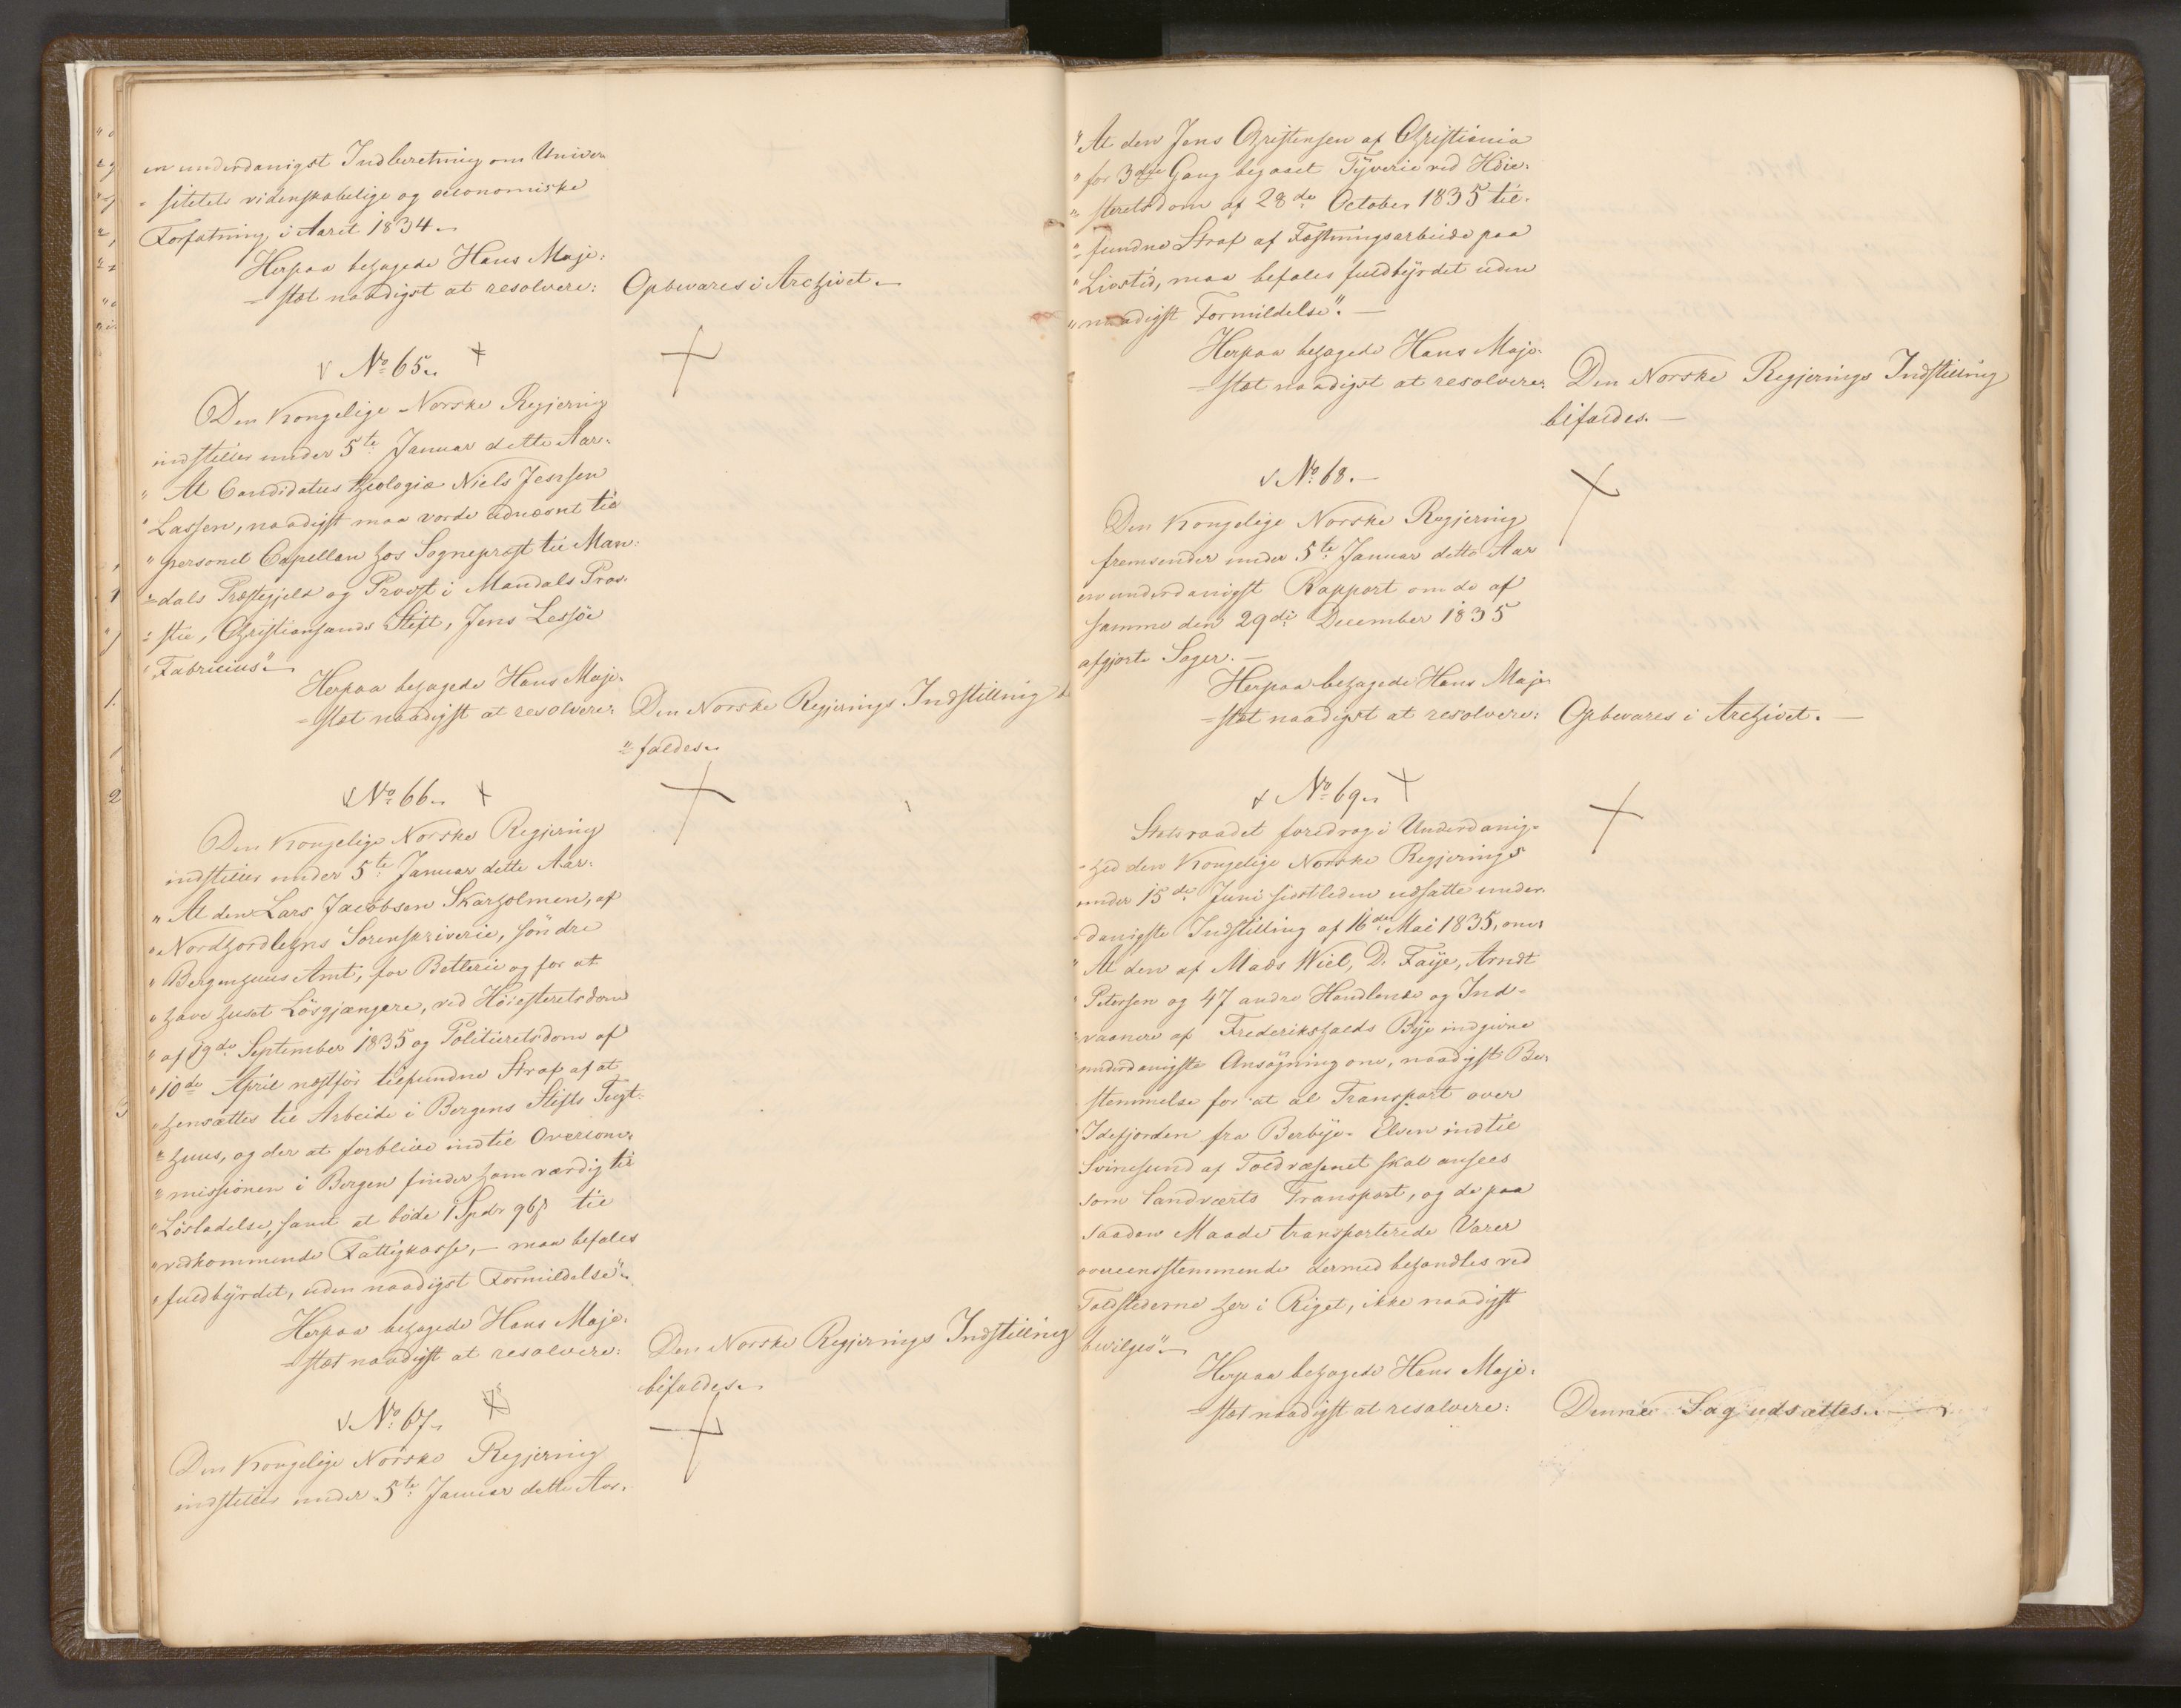 en underdanigst Indberetning om Univer
= sitetets videnskabelige og oeconomiske
Forfatning i Aaret 1834.
Herpaa behagede Hans Maje-
= stæt naadigst at resolvere: Opbevares i Archivet.
No 65.
Den Kongelige Norske Regjering
indstiller under 5te Januar dette Aar:
" At Candidatus theologiæ Niels Jensen
" Lassen, naadigst maa vorde udnævnt til
" personel Capellan hos Sogneprest til Man-
= dals Præstegjeld og Provst i Mandals Prov-
= stie, Christiansands Stift, Jens Lessöe
" Fabricius".
Herpaa behagede Hans Maje-
= stæt naadigst at resolvere: Den Norske Regjerings Indstilling
= faldes.
No 66.
Den Kongelige Norske Regjering
indstiller under 5te Januar dette Aar:
" At den Lars Jacobsen Skarholmen, af
" Nordhordlehns Sorenskriverie, söndre
" Bergenhuus Amt, for Betlerie og for at
" have huset Lösgjængere, ved Höiesteretsdom
" af 19de September 1835 og Politieretsdom af
" 10de April næstför tilfundne Straf af at
" hensættes til Arbeide i Bergens Stifts Tugt-
= huus, og der at forblive indtil Overcom-
" missionen i Bergen finder ham værdig til
" Lösladelse, samt at böde 1 Spdr 96 ß til
" vedkommende Fattigkasse, — maa befales
" fuldbyrdet, uden naadigst Formildelse".
Herpaa behagede Hans Maje-
= stæt naadigst at resolvere: Den Norske Regjerings Indstilling
bifaldes.
No 67.
Den Kongelige Norske Regjering
indstiller under 5te Januar dette Aar.
" At den Jens Christensen af Christiania
" for 3die Gang begaaet Tyverie ved Höie-
= steretsdom af 28de October 1835 til-
= fundne Straf af Fæstningsarbeide paa
" Livstid, maa befales fuldbyrdet uden
" naadigst Formildelse". —
Herpaa behagede Hans Maje-
= stæt naadigst at resolvere: Den Norske Regjerings Indstilling
bifaldes. —
No 68. —
Den Kongelige Norske Regjering
fremsender under 5te Januar dette Aar
en underdanigst Rapport om de af
samme den 29de December 1835
afgjorte Sager. —
Herpaa behagede Hans Maje-
= stæt naadigst at resolvere: Opbevares i Archivet. —
No 69.
Statsraadet foredrog i Underdanig-
= hed den Kongelige Norske Regjerings
under 15de Juni sidstleden udsatte under-
= danigste Indstilling af 16de Mai 1835, om:
" At den af Mads Wiel, D. Faye, Arndt
" Petersen og 47 andre Handlende og Ind-
= vaanere af Frederikshalds Bye indgivne
underdanigste Ansögning om, naadigst Be-
stemmelse for at al Transport over
" Idefjorden fra Berbye- Elven indtil
Svinesund af Toldvæsenet skal ansees
som landværts Transport, og de paa
saadan Maade transporterede Varer
overeensstemmende dermed behandles ved
Toldstederne her i Riget, ikke naadigst
bevilges".
Herpaa behagede Hans Maje-
= stæt naadigst at resolvere: Denne Sag udsættes.